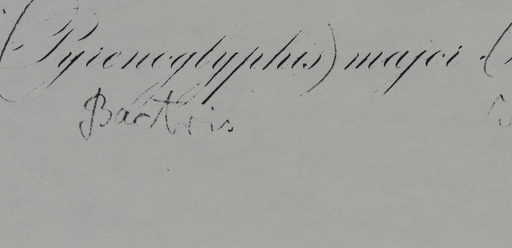 (Pyrenoglyphis) major. (
Bactris